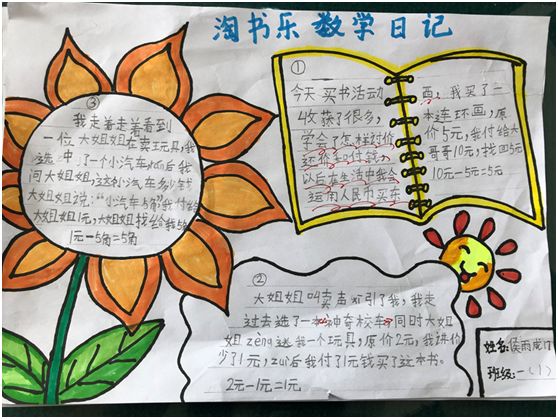 淘书乐数学日记
①
今天买书活动
收获了很多,
学会了怎样讨价
还价和付钱,
以后在生活中我会
运用人民币买东
西,我买了一
本连环画,原
价5元,我付给大
哥哥10元,找回5元
10元-5元=5元
③
我走着走着看到
一位大姐姐在卖玩具,我
选中了一个小汽车,后我
问大姐姐,这小汽车多少钱
大姐姐说:“小汽车5角”我付给
大姐姐1元,大姐姐找给我5角
1元-5角=5角
②
大姐姐叫卖声xī引了我,我走
过去选了一本神奇校车,同时大姐
姐zeng送我一个玩具,原价2元,我讲价
少了1元,zuì后我付了1元钱买了这本书。
2元-1元=1元
姓名:侯雨
班级:一(1)